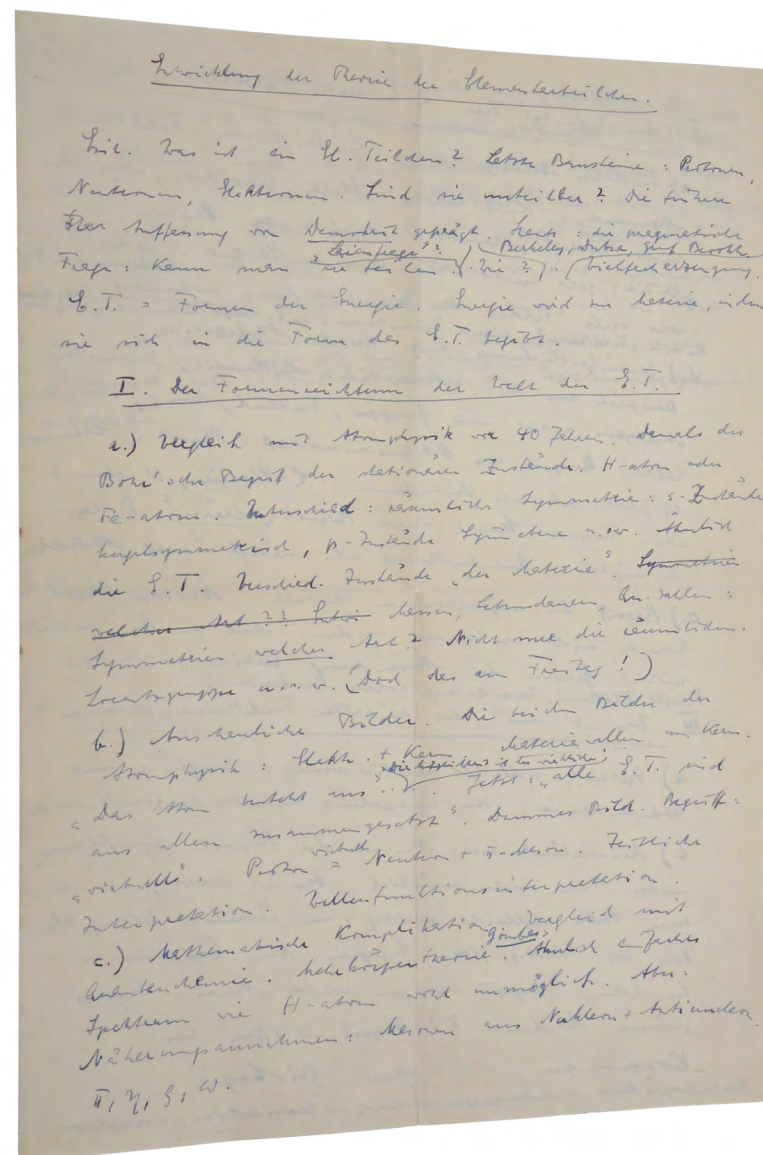 Entwicklung der Theorie der Elementarteilchen.
Einl. Was ist ein El. Teilchen? Letzte Bausteine: Protonen,
Neutronen, Elektronen. Sind sie unteilbar? Die frühere
Auffassung von Demokrit geprägt. Heute: die
"Laienfrage"? Berkeley, Dubna, Genf
Frage: Kann man sie teilen? (Wie?). (Vielfacherzeugung.
E.T. = Formen der Energie. Energie wird zu Materie, indem
sie sich in die Form des E.T. begibt.
I. Der Formenreichtum der Welt der E.T.
a.) Vergleich mit Atomphysik vor 40 Jahren. Damals der
Bohr'sche Begriff der stationären Zustände. H-atom oder
Fe-atom. Unterschied: räumliche Symmetrie: s-Zustände
kugelsymmetrisch, p-Zustände u.s.w. Ähnlich
die E.T. Verschied. Zustände „der Materie". Symmetrien
welcher Art?? Massen, Lebensdauern, Qu. zahlen:
Symmetrien welcher Art? Nicht nur die räumlichen.
Lorentzgruppe u.s.w. (Doch das am Freitag!)
b.) Anschauliche Bilder. Die beiden Bilder der
Atomphysik: Elektr. + Kern, Materiewellen um Kern.
"Das Atom besteht aus". Jetzt: „alle E.T. sind
aus allen zusammengesetzt". Dummes Bild. Begriff:
virtuell
"virtuell". Proton = Neutron + π-Meson. Zeitliche
Interpretation. Wellenfunktionsinterpretation.
c.) Mathematische Komplikation, Vergleich mit
Gombas
Quantenchemie. Mehrkörpertheorie. Ähnlich einfaches
Spektrum wie H-atom wohl unmöglich. Aber:
Näherungsannahmen: Mesonen aus Nukleon + Antinukleon.
π, η, ρ, ω.